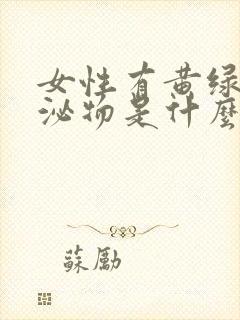 女性有黄绿
泌物是什麼
蘇勵